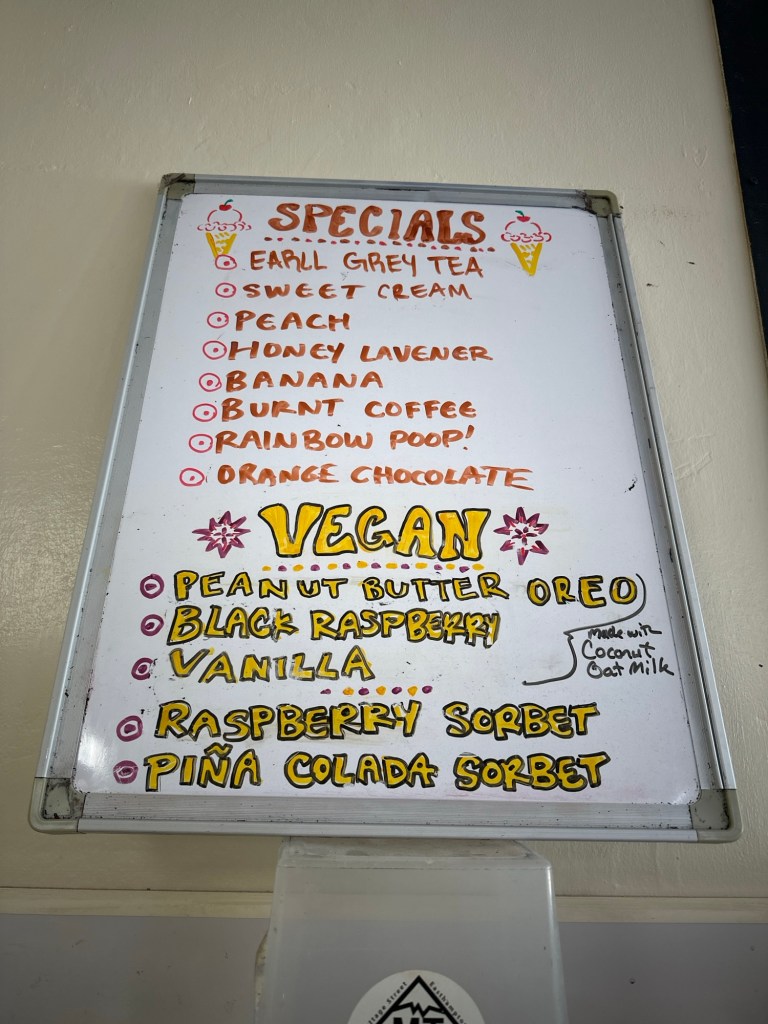 SPECIALS
EARLL GREY TEA
SWEET CREAM
PEACH
HONEY LAVENER
BANANA
BURNT COFFEE
RAINBOW POOP!
ORANGE CHOCOLATE
VEGAN
PEANUT BUTTER OREO
BLACK RASPBERRY
VANILLA
Made with
Coconut
Oat Milk
RASPBERRY SORBET
PIÑA COLADA SORBET